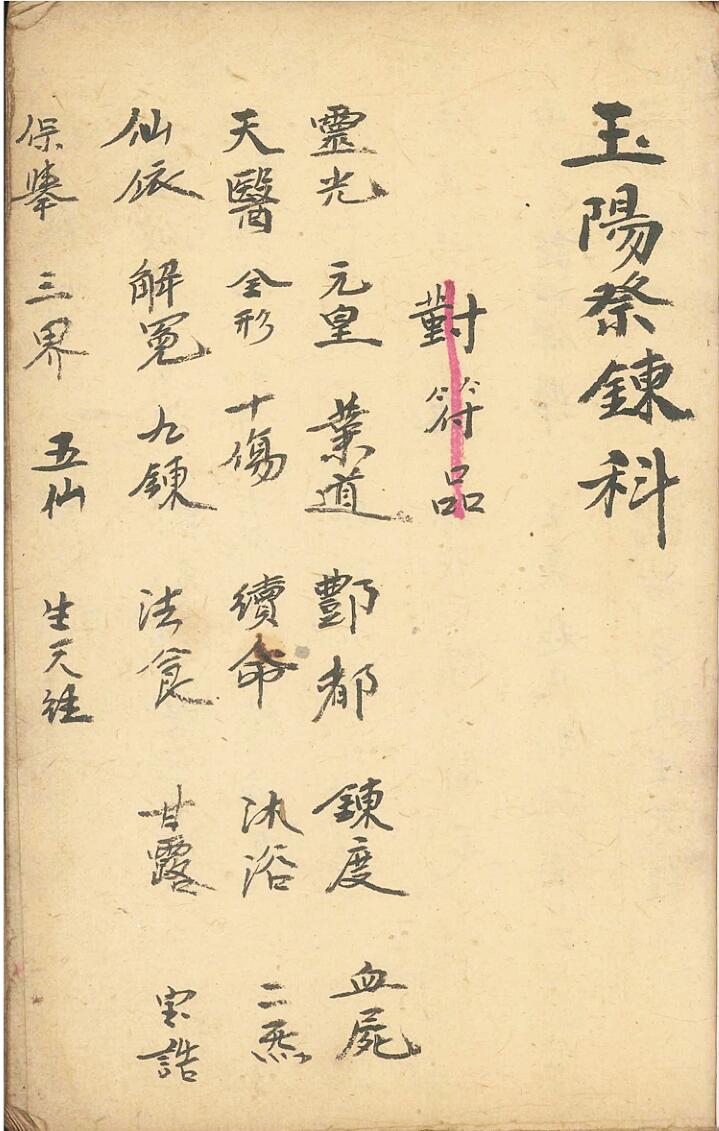 玉陽祭鍊科
對符品
靈光 元皇 業道 酆都 鍊度 血屍
天醫 全形 十傷 續命 沐浴 二炁
仙依 解冤 九鍊 法食 甘露 宝誥
保舉 三界 五仙 生天